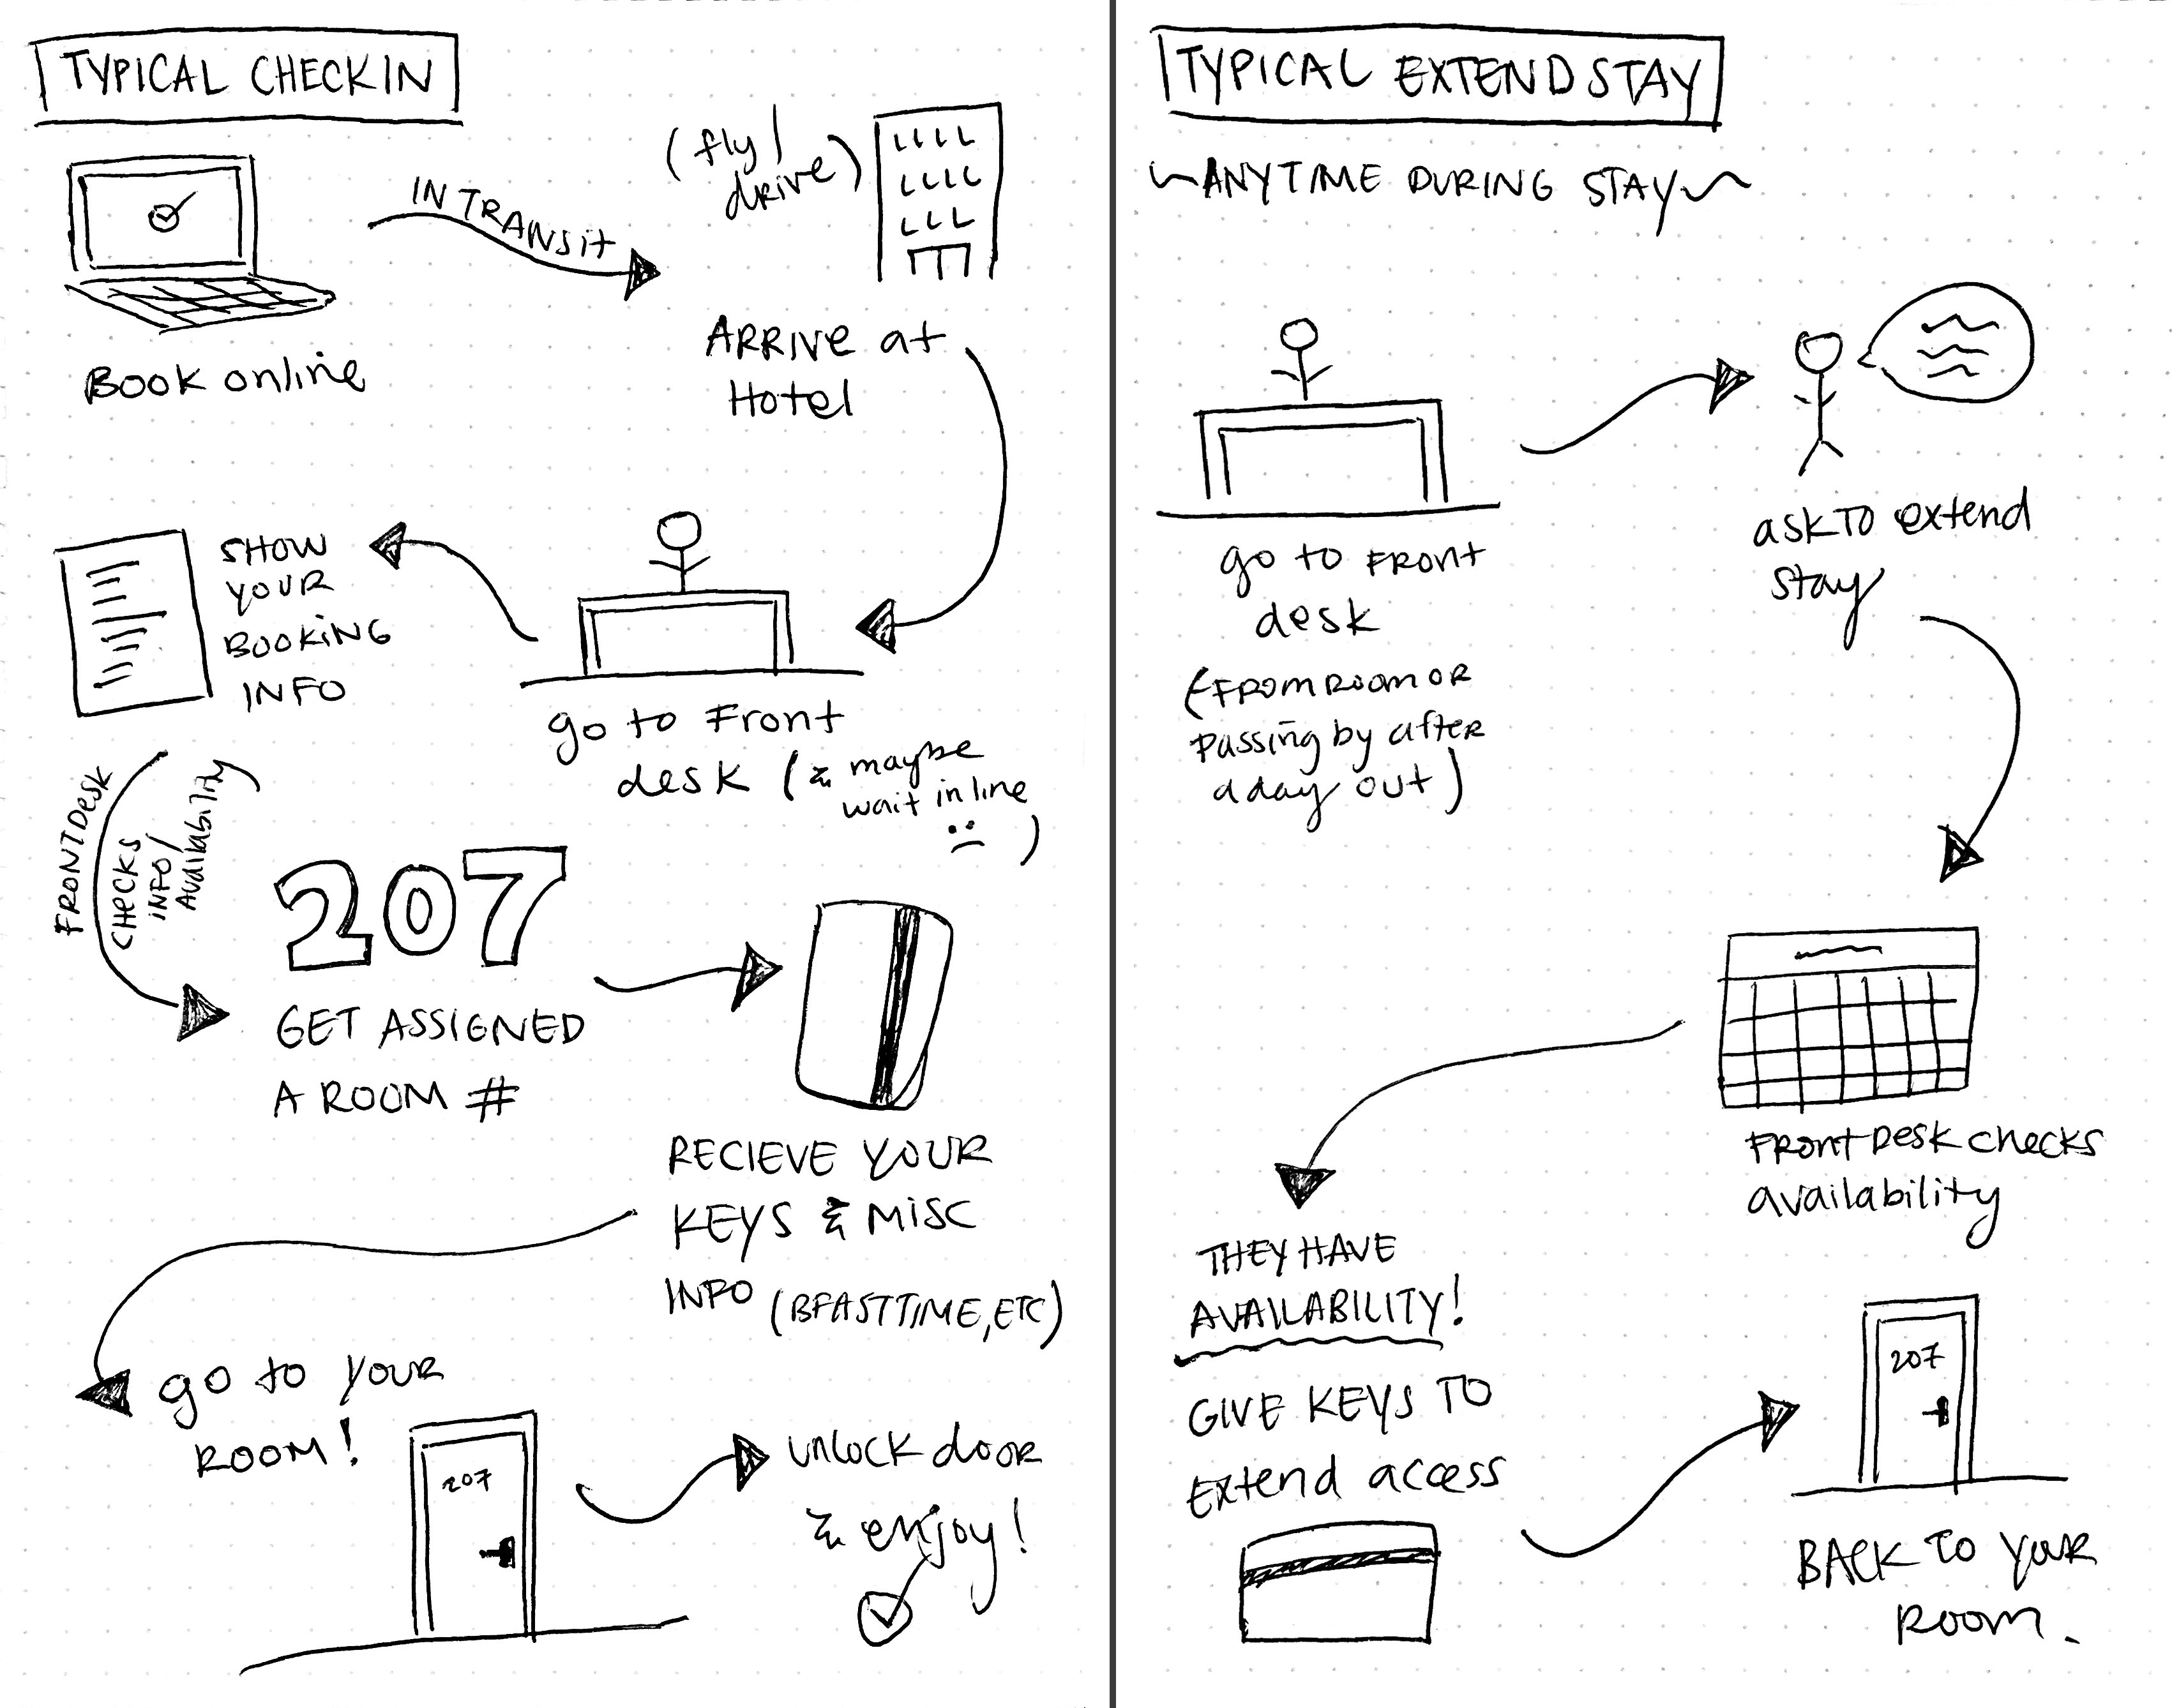 TYPICAL CHECKIN
BOOK online
IN TRANSit
(fly/
drive)
ARRIVE at
Hotel
go to Front
desk (& maybe
wait in line
:( )
SHOW
YOUR
BOOKING
INFO
FRONTDESK
CHECKS
INFO/
Availability)
207
GET ASSIGNED
A ROOM #
RECIEVE YOUR
KEYS & MISC
INFO (BFASTTIME, ETC)
go to your
ROOM!
207
unlock door
& enjoy!
TYPICAL EXTEND STAY
~ANYTIME DURING STAY~
go to FRONT
desk
(FROM ROOM OR
passing by after
a day out)
ask TO extend
stay
FRONT DESK checks
availability
THEY HAVE
AVAILABILITY!
GIVE KEYS TO
Extend access
207
BACK TO YOUR
ROOM.